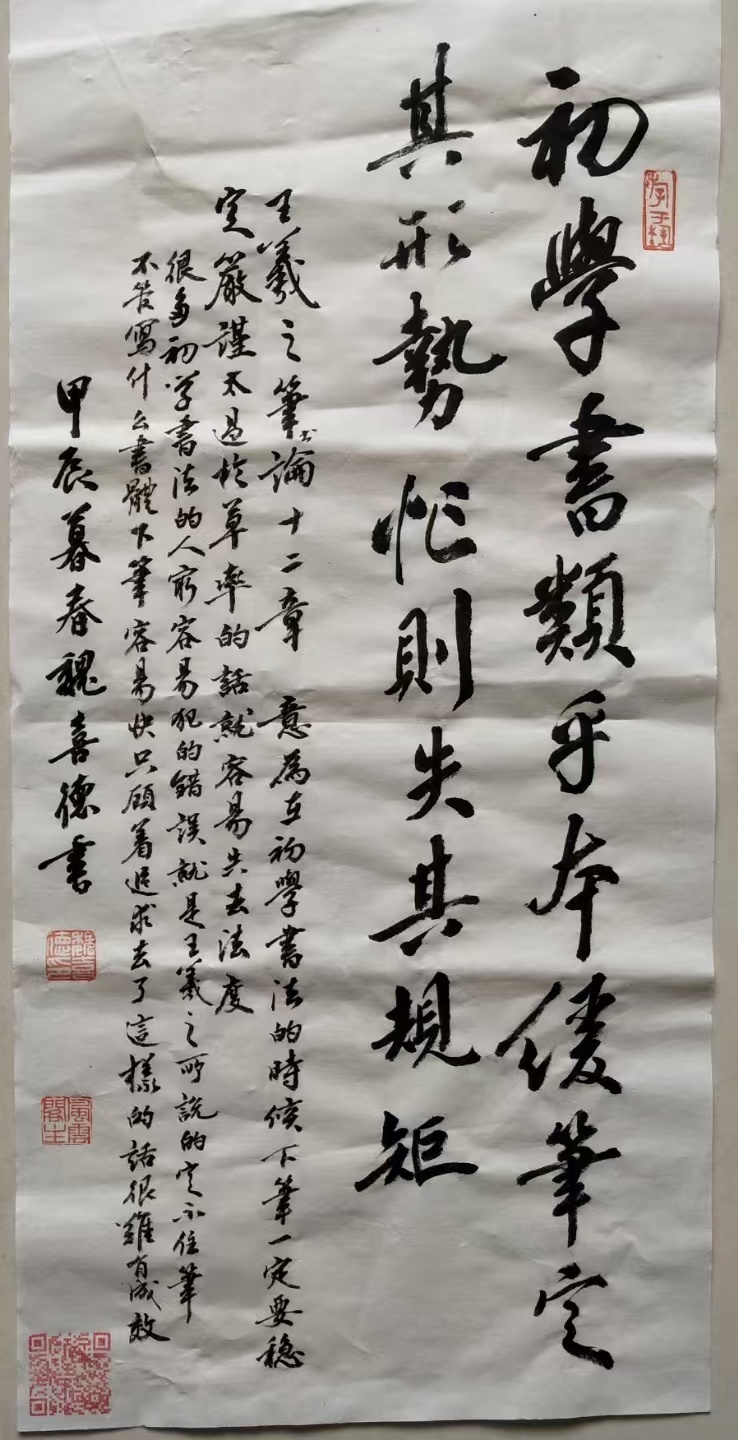 初學書類乎本緩筆定
其形勢忙則失其規矩
王羲之筆書論十二章 意為在初學書法的時候下筆一定要穩
定嚴謹太過於草率的話就容易失去法度
很多初学書法的人窮容易犯的錯誤就是王羲之所說的定不住筆
不管寫什么書體下筆容易快只顧着追求去了這樣的話很難有成效
甲辰暮春魏喜德書